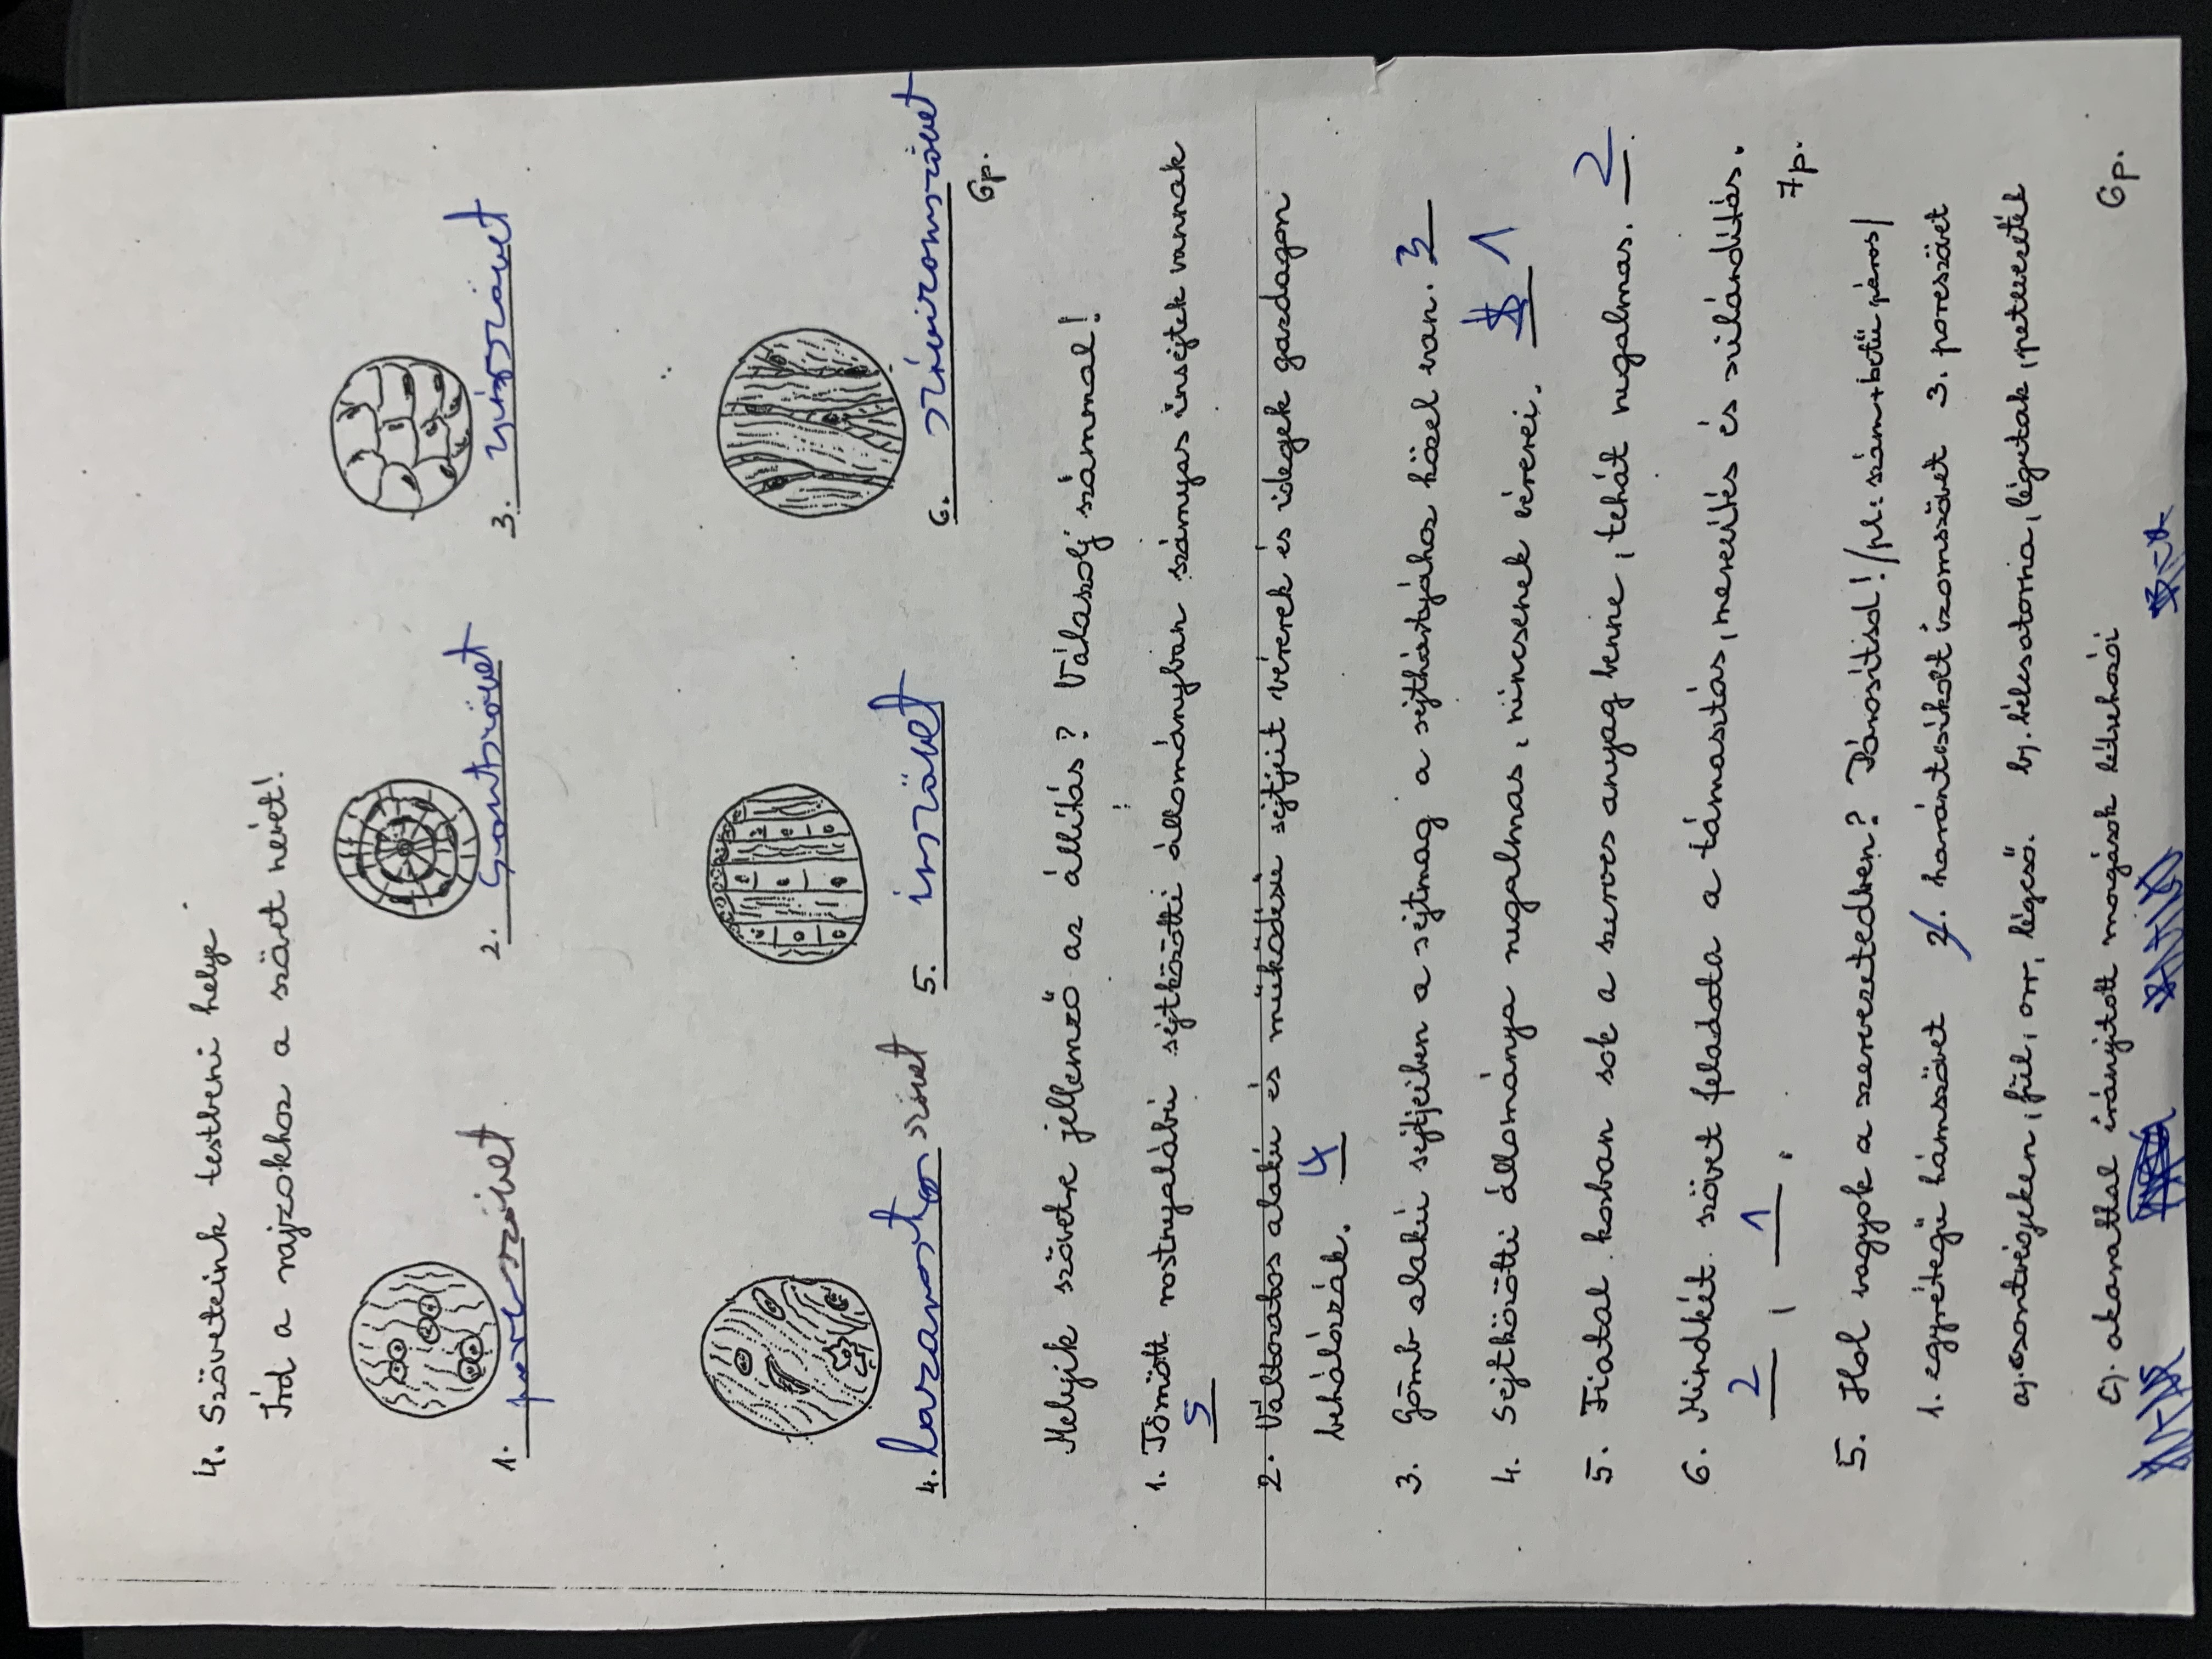 4. Szöveteink testbeni helye
Írd a rajzokhoz a szövet nevét!
1. porcszövet 2. Csontszövet 3. zsírszövet
4. lazarostos szövet 5. ínszövet 6. szívizomszövet
6p.
Melyik szövetre jellemző az állítás? Válaszolj számmal!
1. Tömött rostnyalábú sejtközötti állományban szárnyas ínsejtek vannak
5
2. Változatos alakú és működésű sejtjeit vérerek és idegek gazdagon
behálózzák. 4
3. Gömb alakú sejtjeiben a sejtmag a sejthártyához közel van. 3
4. Sejtközötti állománya rugalmas, nincsenek vérerei. 1
5. Fiatal korban sok a szerves anyag benne, tehát rugalmas. 2.
6. Mindkét szövet feladata a támasztás, merevítés és szilárdítás.
2, 1. 7p.
5. Hol vagyok a szervezetedben? Párosítsd! /pl: szám+betű páros/
1. egyrétegű hámszövet 2. harántcsíkolt izomszövet 3. porcszövet
a). csontvégeken, fül, orr, légcső. b). bélcsatorna, légutak, petevezeték
c). akarattal irányított mozgások létrehozói 6p.